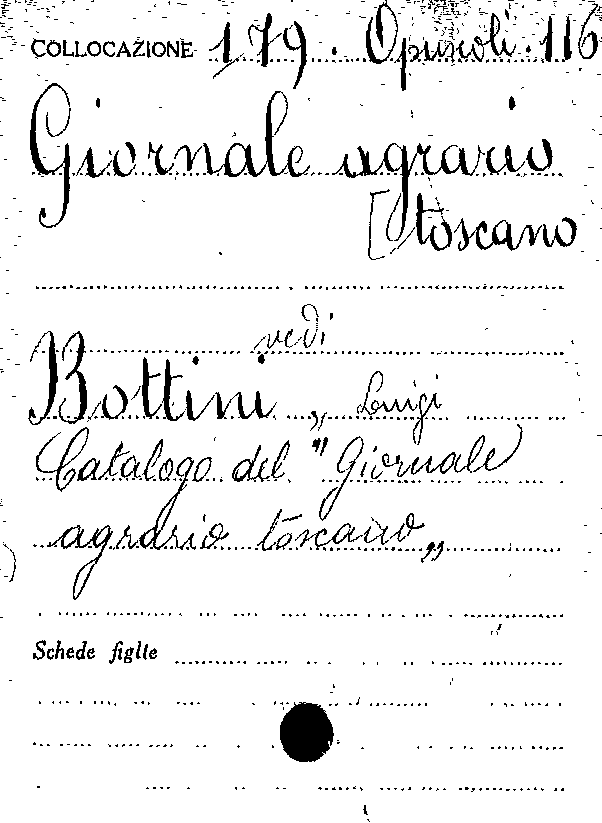 COLLOCAZIONE 179. Opuscoli. 116
Giornale agrario
[toscano
vedi
Bottini, Luigi
Catalogo del "Giornale
agrario toscano"
Schede figlie